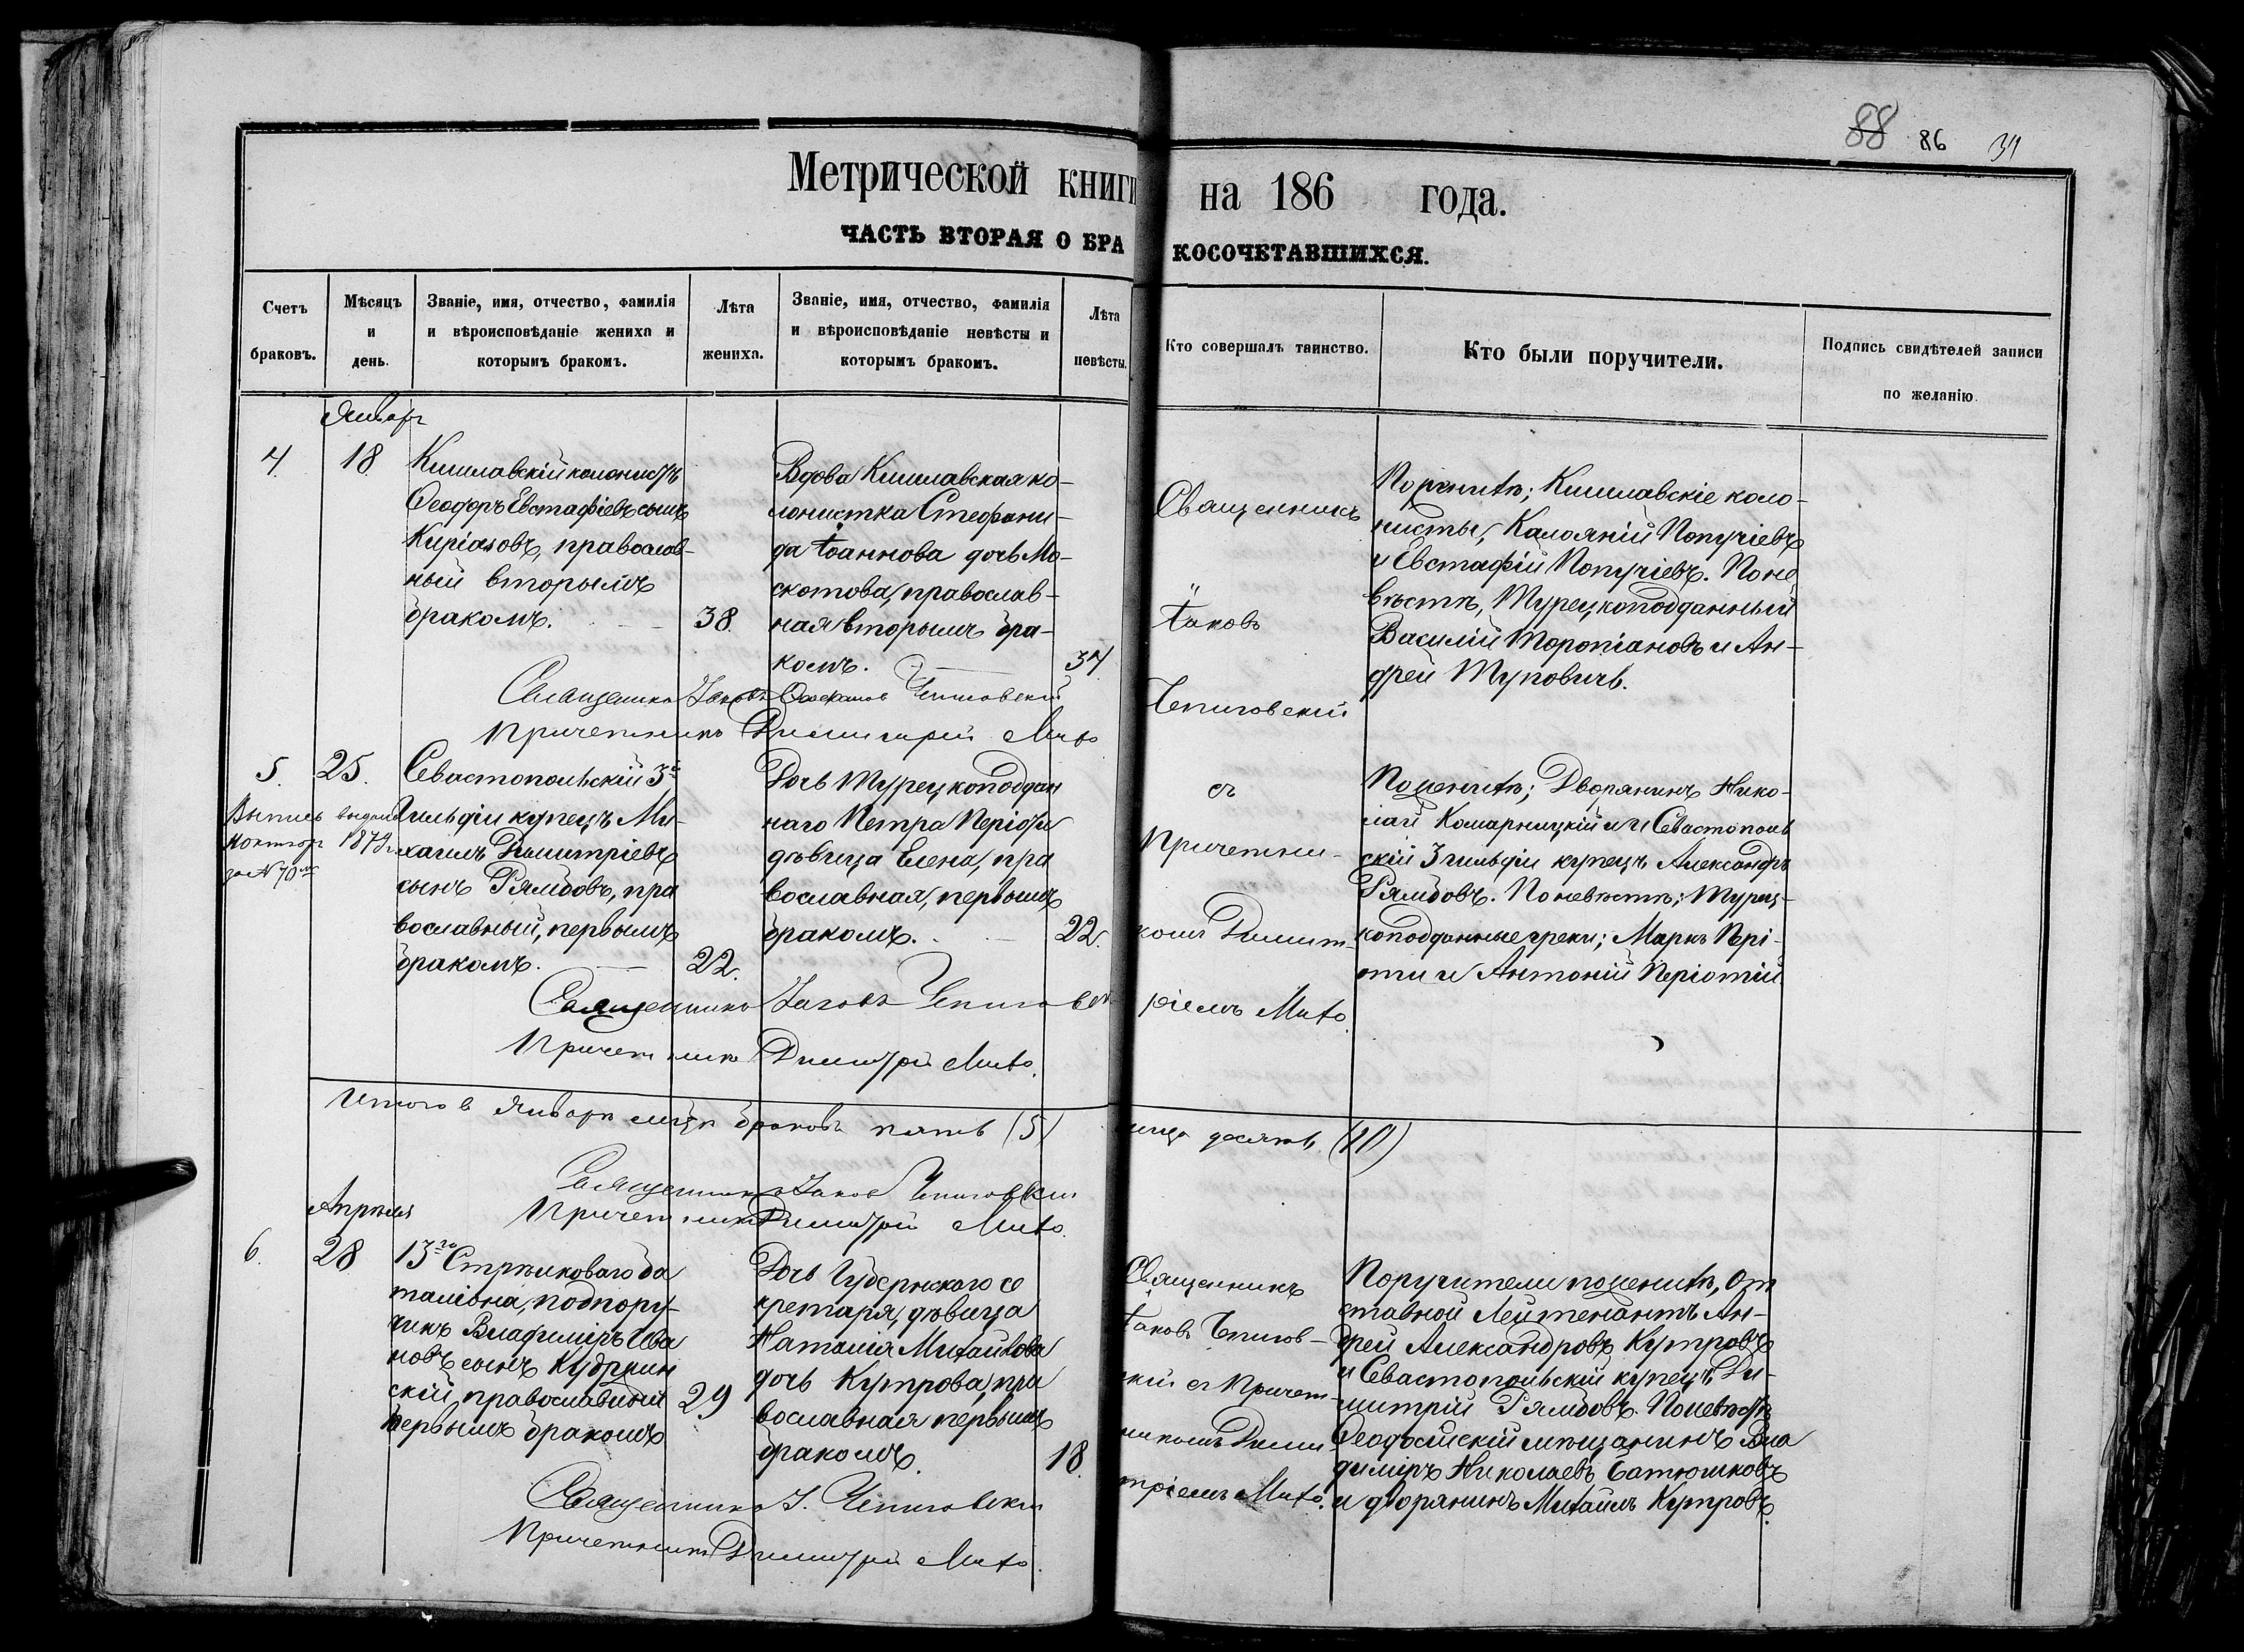 88 86
Метрической книги на 186 года.
ЧАСТЬ ВТОРАЯ О БРАКОСОЧЕТАВШИХСЯ.
Счетъ браковъ.
Мѣсяцъ и день.
Званіе, имя, отчество, фамилія
и вѣроисповѣданіе жениха и
которымъ бракомъ.
Лѣта жениха.
Званіе, имя, отчество, фамилія
и вѣроисповѣданіе невѣсты и
которымъ бракомъ.
Лѣта невѣсты.
Кто совершалъ таинство.
Кто были поручители.
Подпись свидѣтелей записи
по желанію.
Январь
4.
18
Кишлавскій колонистъ
Ѳеодоръ Евстафіевъ сынъ
Киріазовъ, православ-
ный вторымъ
бракомъ.
38.
Вдова Кишлавская ко-
лонистка Стефани-
да Іоаннова дочь Мо-
скотова, православ-
ная вторымъ бра-
комъ.
34
Священникъ
Іаковъ
Чепиговскій
съ
Причетни-
комъ Димит-
ріемъ Мито.
По женихѣ; Кишлавскіе коло-
нисты, Калояній Попучіевъ
и Евстафій Попучіевъ. По не
вѣстѣ, Турецкоподданный
Василій Торопіановъ и Ан-
дрей Туповичъ.
Священникъ Іаковъ Чепиговскій
Причетникъ Димитрій Мито
5.
25.
Выпись выдана
1873 г.
за № 70
Севастопольскій 3й
Гильдіи купецъ Ми-
хаилъ Димитріевъ
сынъ Рямбовъ, пра
вославный, первымъ
бракомъ.
22.
Дочь Турецкоподдан
наго Петра Періоти
дѣвица Елена, пра
вославная, первымъ
бракомъ.
22.
По женихѣ; Дворянинъ Нико-
лай Комарницкій и Севастополь
скій 3 гильдіи купецъ Александръ
Рямбовъ. По невѣстѣ; Турец-
коподданные греки; Маркъ Пері-
оти и Антоній Періотій.
Священникъ Іаковъ Чепиговск
Причетникъ Димитрій Мито.
Итого в Январѣ мцѣ браковъ пять (5)
лица десять (10)
Священникъ Іаковъ Чепиговскій
Причетникъ Димитрій Мито.
Апрѣля
6.
28
13го Стрѣлковаго ба
таліона, подпору-
чикъ Владиміръ Ива
новъ сынъ Кудрин
скій православный
первымъ бракомъ
29
Дочь Губернскаго се
кретаря, дѣвица
Наталія Михайлова
дочь Кутрова, пра
вославная первымъ
бракомъ.
18.
Священникъ
Іаковъ Чепигов-
скій съ Причет-
никомъ Дими
тріемъ Мито.
Поручители по женихѣ, От
ставной Лейтенантъ Ан-
дрей Александровъ Кутровъ
и Севастопольскій купецъ Ди-
митрій Рямбовъ. По невѣстѣ
Ѳеодосійскій мѣщанинъ Вла
диміръ Николаевъ Батюшковъ
и дворянинъ Михаилъ Кутровъ.
Священникъ І. Чепиговскій
Причетникъ Димитрій Мито.